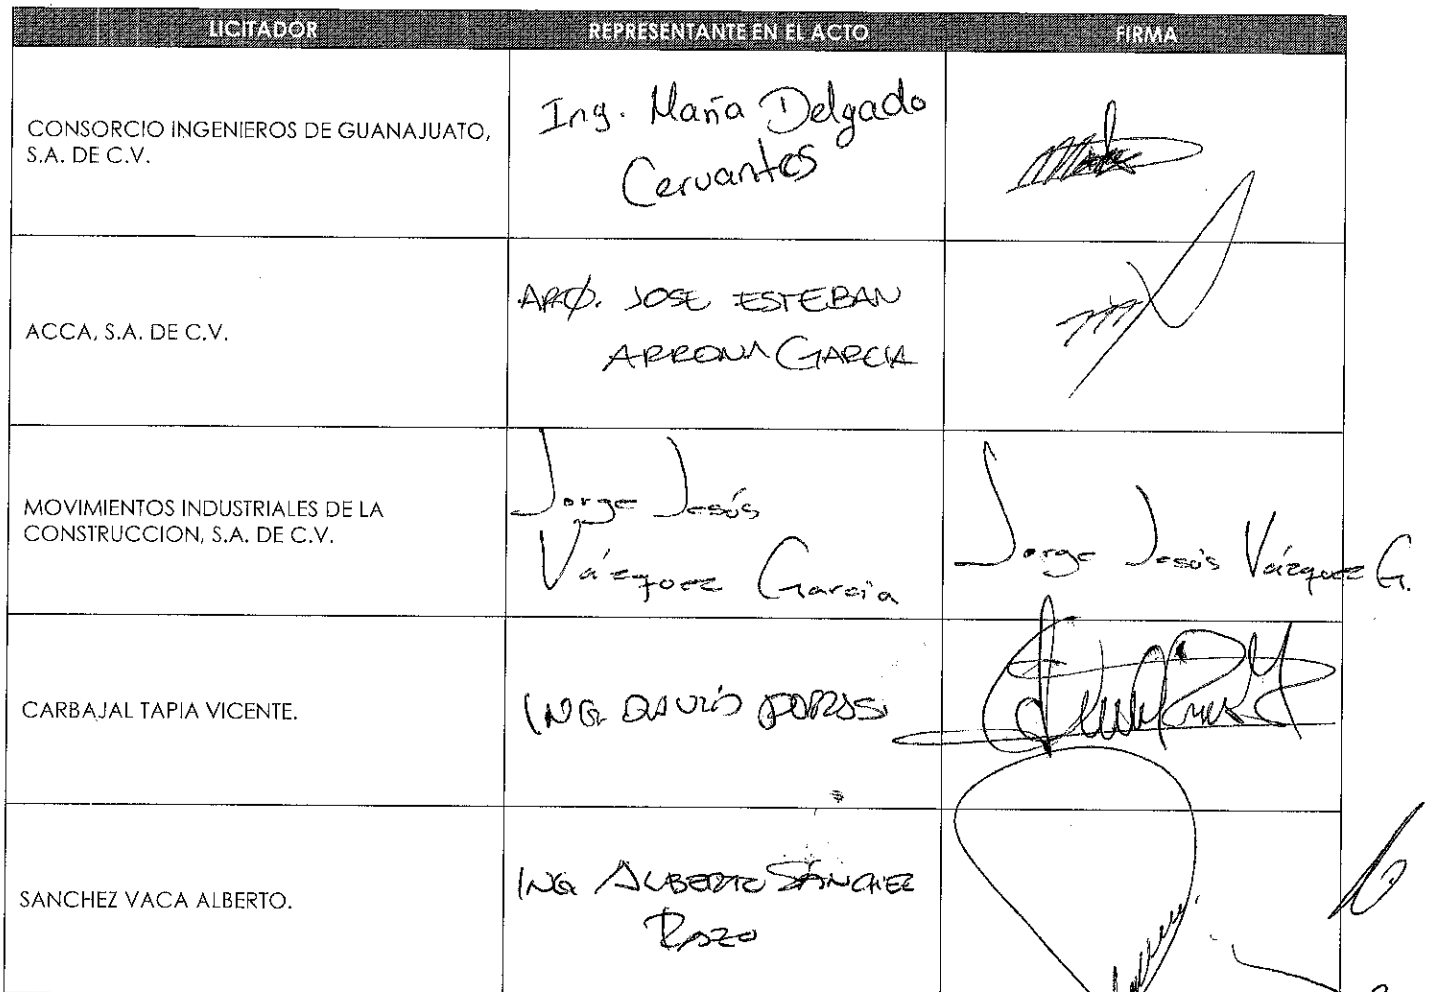 LICITADOR REPRESENTANTE EN EL ACTO FIRMA
CONSORCIO INGENIEROS DE GUANAJUATO,
S.A. DE C.V.
Ing. María Delgado
Cervantes
ACCA, S.A. DE C.V.
ARQ. JOSE ESTEBAN
ARRONA GARCIA
MOVIMIENTOS INDUSTRIALES DE LA
CONSTRUCCION, S.A. DE C.V.
Jorge Jesús
Vázquez García
Jorge Jesús Vázquez G.
CARBAJAL TAPIA VICENTE.
ING. DAVID PORRAS
SANCHEZ VACA ALBERTO.
ING ALBERTO SÁNCHEZ
RAZO